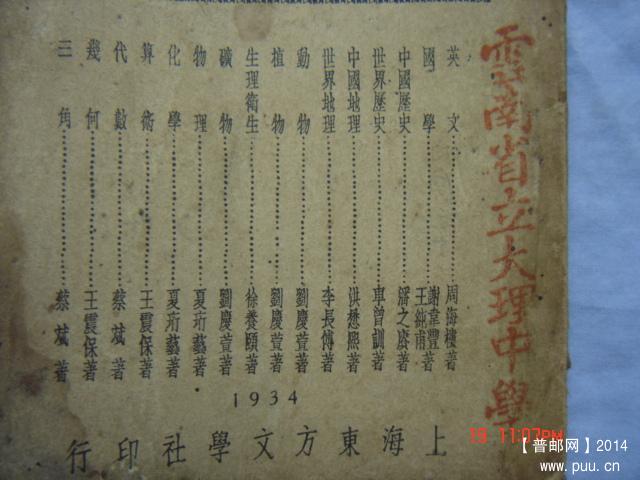 雲南省立大理中學
英文……周海樓著
國學……謝韋豐 王純甫著
中國歷史……潘之賡著
世界歷史……車曾訓著
中國地理……洪懋熙著
世界地理……李長傅著
動物……劉慶萱著
植物……劉慶萱著
生理衛生……徐養頤著
礦物……劉慶萱著
物理……夏珩藝著
化學……夏珩藝著
算術……王震保著
代數……蔡斌著
幾何……王震保著
三角……蔡斌著
1934
上海東方文學社印行
19 11:07PM
【普邮网】2014
www.puu.cn